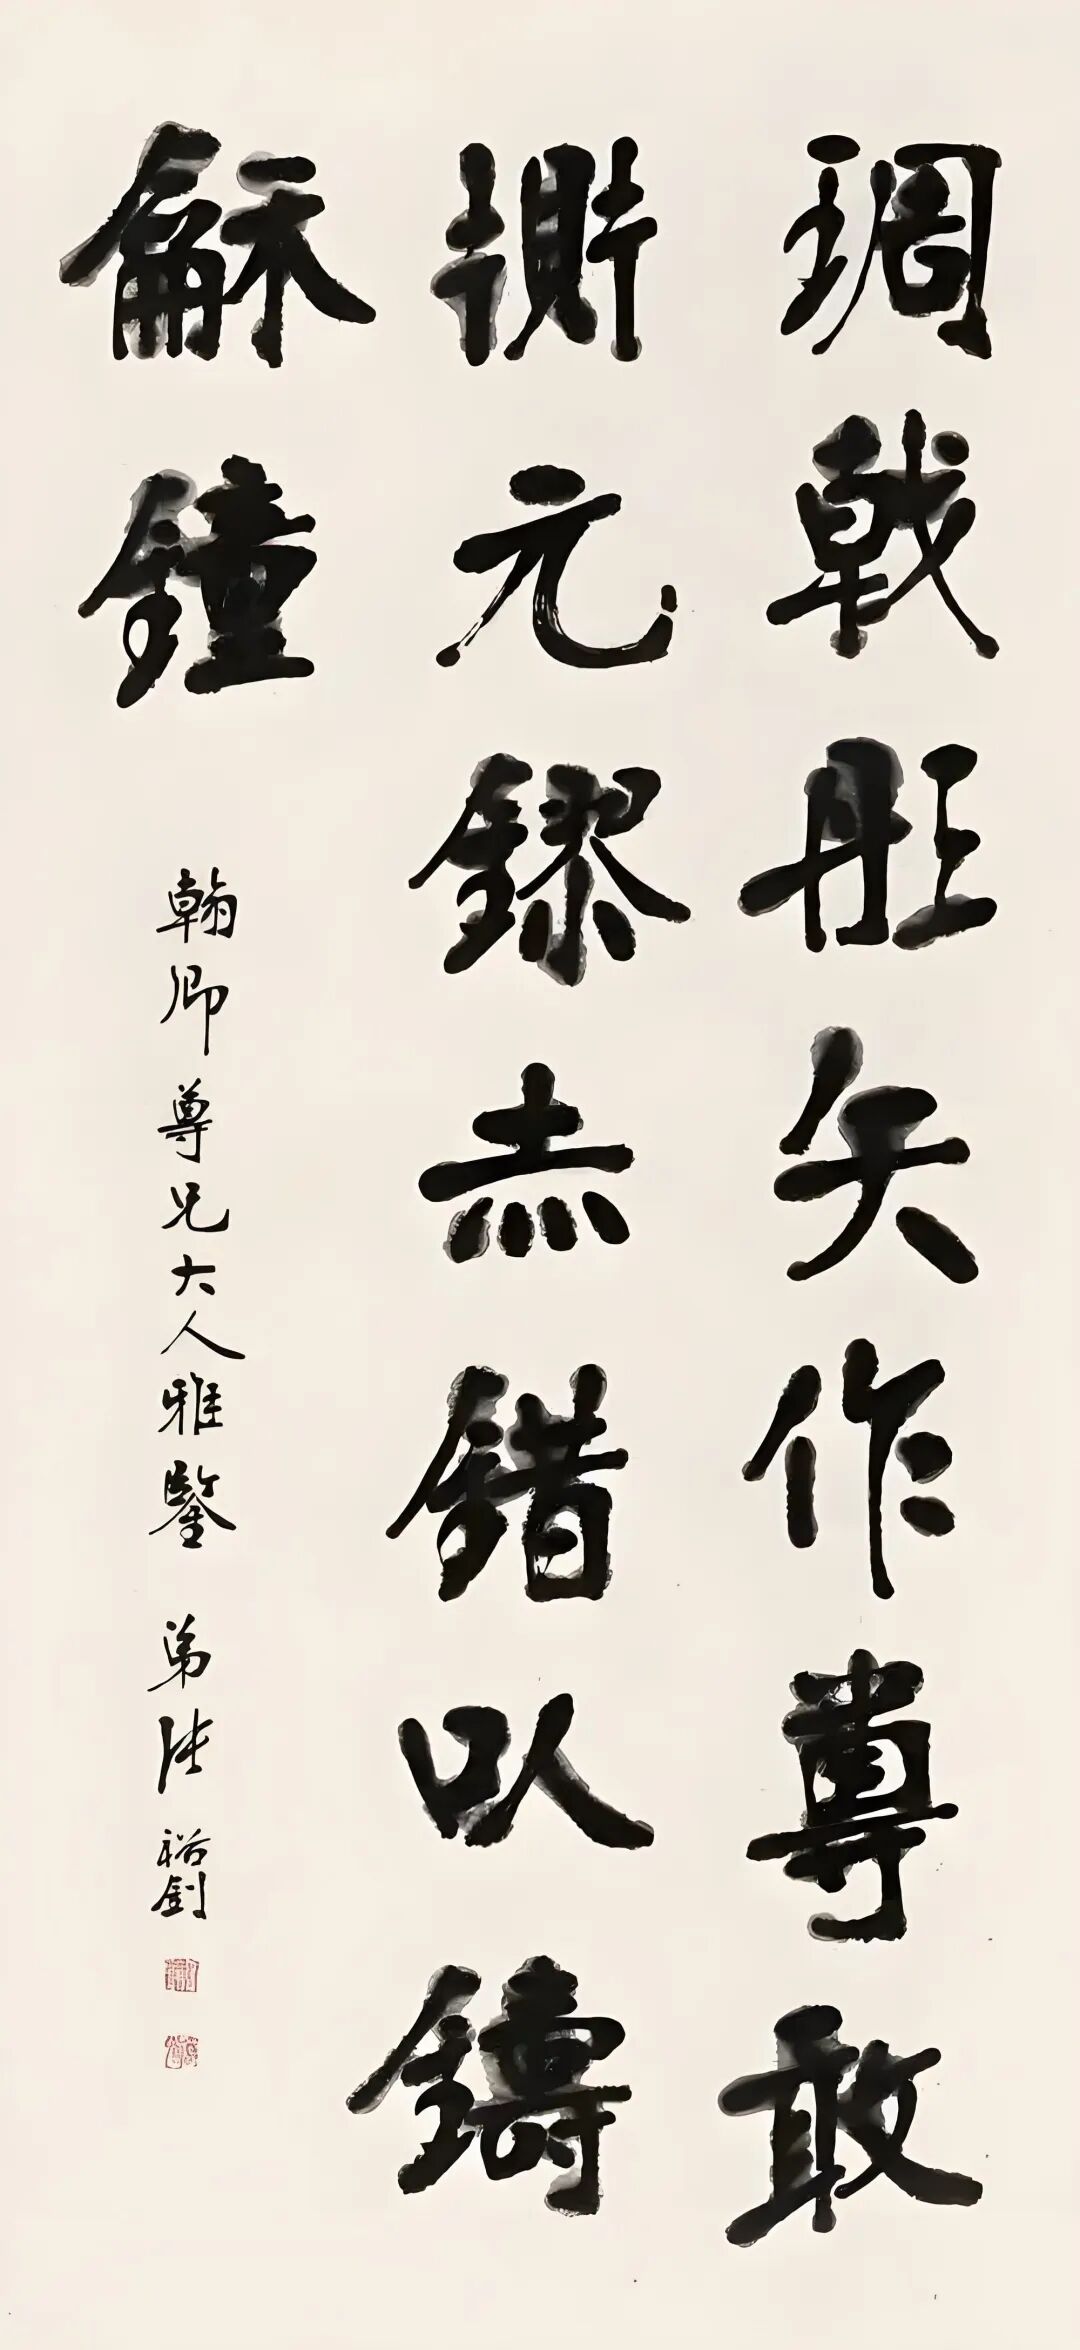 琱戟彤矢作尊敢
元鏐赤錯以鑄
龢鐘
翰卿尊兄大人雅鑒 弟張裕釗